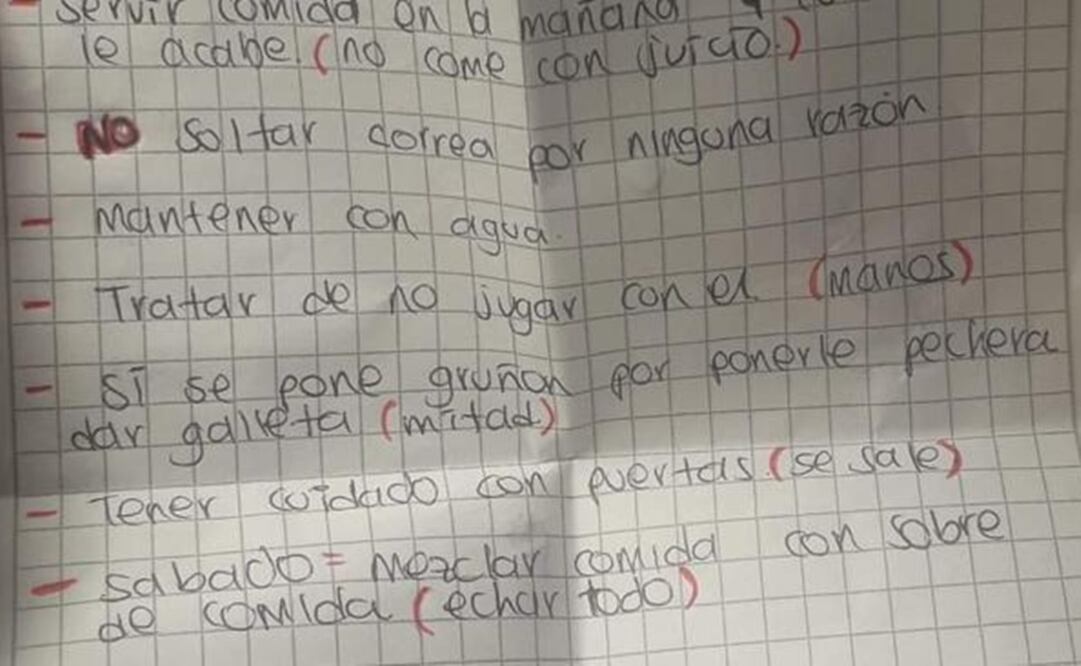 - servir comida en la mañana y
le acabe. (no come con juicio.)
- NO soltar correa por ninguna razón
- Mantener con agua.
- Tratar de no jugar con el (manos)
- si se pone gruñon por ponerle pechera
dar galleta (mitad)
- Tener cuidado con puertas (se sale)
- sabado = Mezclar comida con sobre
de comida (echar todo)